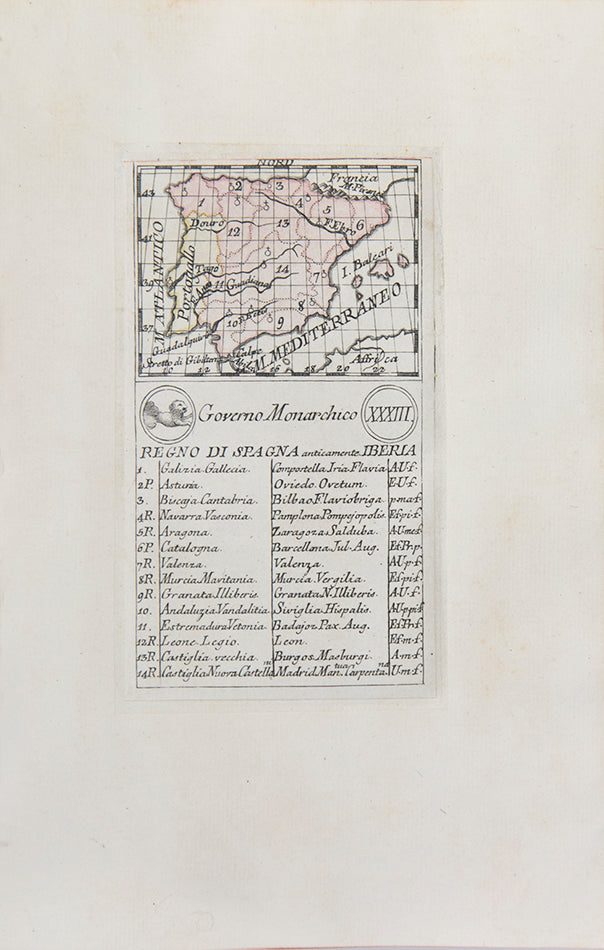 NORD
Francia
M. Pirenei
43
1
2
3
4
5
6
Douro
12
13
F. Ebro
41
M. ATLANTICO
Portogallo
I. Baleari
Tago
14
7
39
F. Ana
11
Guadiana
10
8
9
37
Guadalquivir
M. MEDITERRANEO
Stretto di Gibilterra
Calpe
Affrica
12
16
18
20
22
Governo Monarchico
XXXIII.
REGNO DI SPAGNA anticamente IBERIA
1. Galizia. Gallecia. Compostella. Iria Flavia A·U·f.
2P. Asturia. Oviedo. Ovetum. E·U·f.
3. Biscaja. Cantabria. Bilbao. Flaviobriga p·m·a·f.
4R. Navarra. Vasconia. Pamplona. Pompejopolis. E·f·pi·f.
5R. Aragona. Zaragoza. Salduba. A·U·me·f.
6P. Catalogna. Barcellona. Jul. Aug.
7R. Valenza. Valenza. A·U·p·f.
8R. Murcia. Mavitania. Murcia. Vergilia. E·f·pi·f.
9R. Granata. Illiberis. Granata. N. Illiberis. A·U·f.
10. Andaluzia. Vandalitia. Siviglia. Hispalis.
11. Estremadura. Vetonia. Badajoz. Pax. Aug.
12R. Leone. Legio. Leon. E·f·m·f.
13R. Castiglia. vecchia. Burgos. Masburgi. A·m·f.
14R. Castiglia Nuova. Castella nu Madrid. Mantua. Carpentana U·m·f.